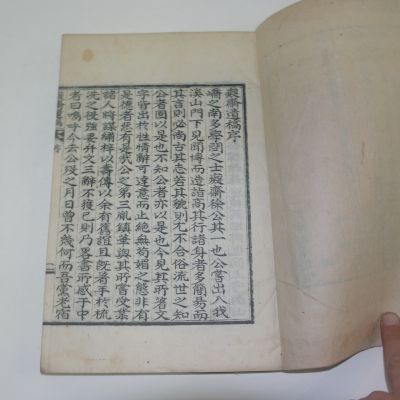 癡齋遺稿序
嶠之南多學問之士癡齋徐公其一也公嘗出入我
溪山門下見聞博而造詣高其行諸身者多簡易而
其言則必尚古其志若其貌則尤不合俗流世之知
公者固以是也不知公者亦以是也今見其所著文
字皆出於性情辭可達意而止絶無苟媚之態非有
是德者然有是哉公之第三胤鎭華與其所嘗受業
諸人將謀繡梓以壽傳以余有舊誼且旣著手於梳
洗之役強要弁文三辭不獲已則乃畧書所感于中
者曰嗚呼今去公歿之月日曾不幾何而吾黨老宿